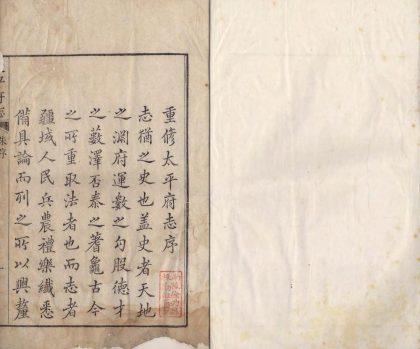 重修太平府志序
志猶之史也蓋史者天地
之淵府運數之勾股德才
之藪澤否泰之蓍龜古今
之所重取法者也而志者
疆域人民兵農禮樂纖悉
備具論而列之所以興釐